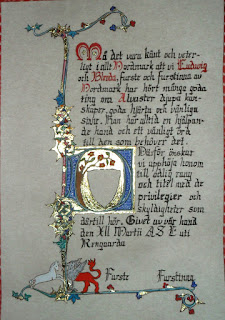 Må det vara känt och veter-
ligt i allt Nordmark att vi Ludwig
och Blenda, furste och furstinna av
Nordmark har hört många goda
ting om Alwister djupa kun-
skaper, goda hjärta och vänliga
sinne. Han har alltid en hjälpan-
de hand och ett vänligt ord
till den som behöver det.
Därför önskar
vi upphöja honom
till adlig rang
och titel med de
privilegier och
skyldigheter som
därtill hör. Givet av vår hand
den XII Martii A.S. uti
Renguarda
Furste Furstinna